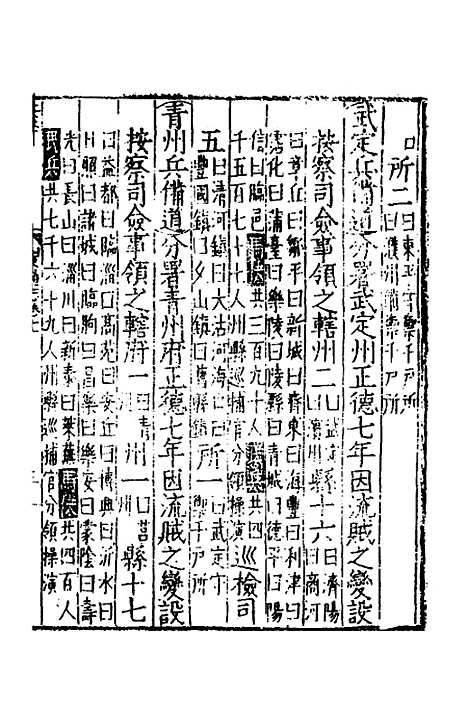 所二曰東平守禦千戶所
曰濮州備禦千戶所
武定兵備道分署武定州正德七年因流賊之變設
按察司僉事領之轄州二曰武定
曰濱州縣十六曰濟陽
曰商河
曰章丘曰鄒平曰新城曰齊東曰海豐曰利津曰
霑化曰蒲臺曰樂陵曰陵縣曰青城曰德平曰陽
信曰臨邑共三百九十人共四
千五百七十七人州縣巡捕官分領操演巡檢司
五曰清河鎮曰大沽河海口曰
豐國鎮曰夕山鎮曰舊縣鎮所一曰武定守
禦千戶所
青州兵備道分署青州府正德七年因流賊之變設
按察司僉事領之轄府一曰青州州一曰莒縣十七
曰益都曰臨淄曰高苑曰博興曰沂水曰
日照曰諸城曰臨朐曰昌樂曰樂安曰蒙陰曰壽
光曰長山曰淄川曰新泰曰萊蕪馬快共四百人
民兵共七千六十九人州縣巡捕官分領操演